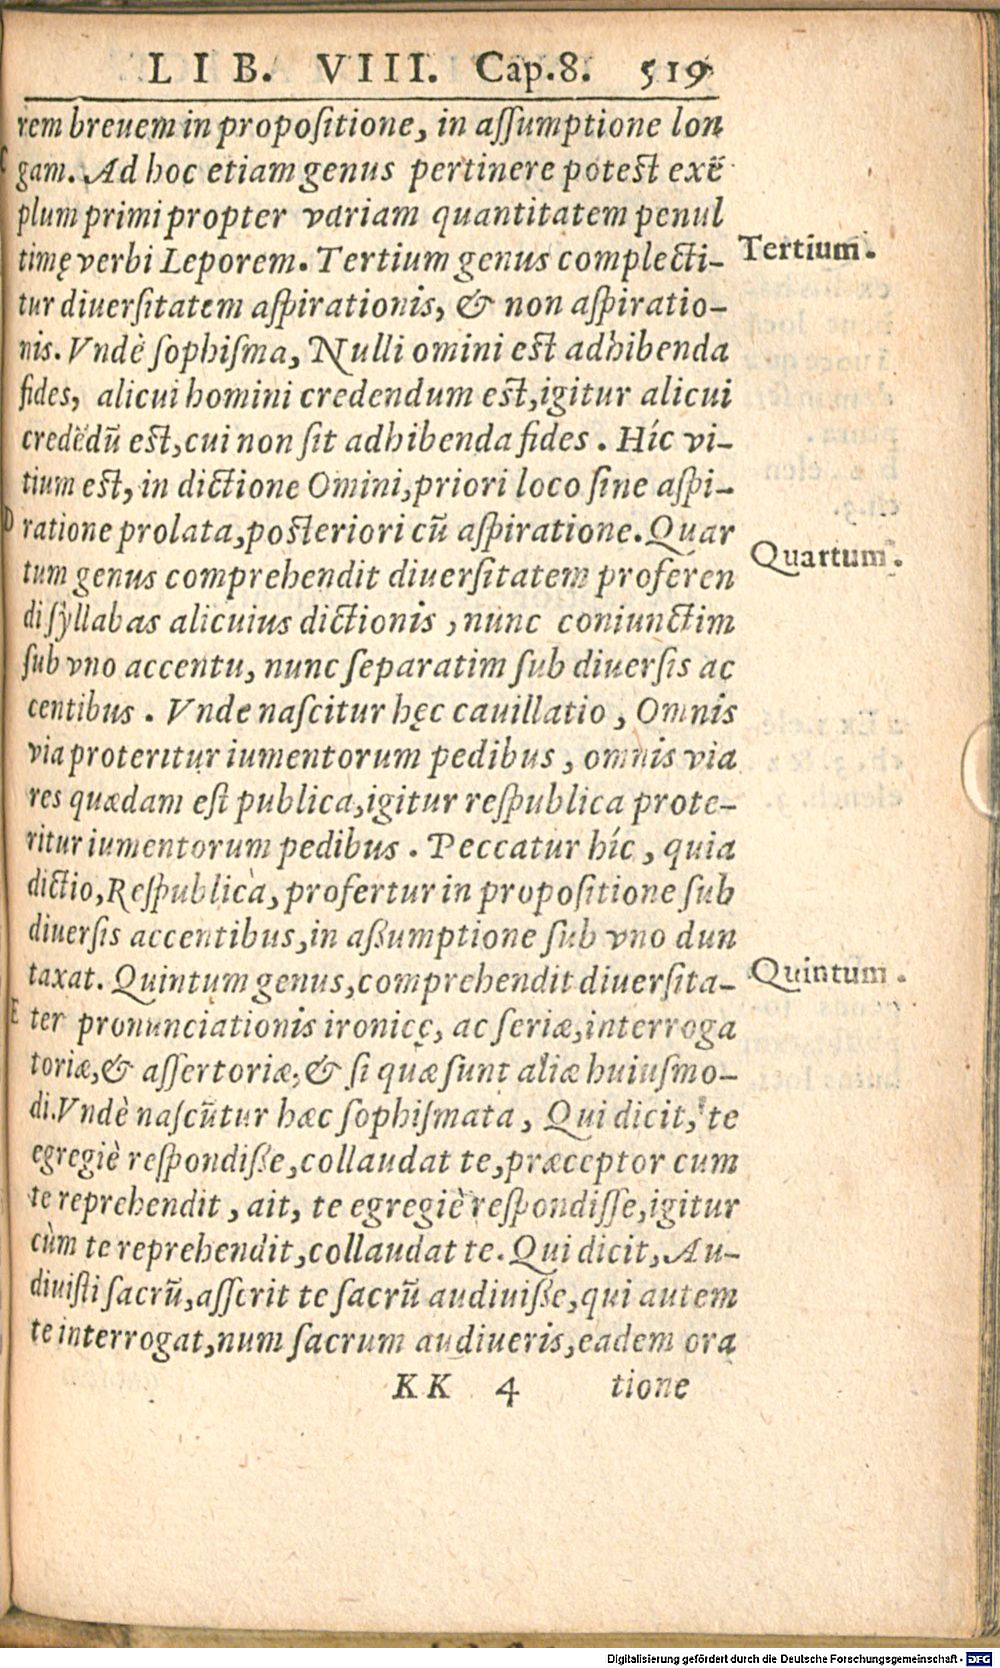 LIB. VIII. Cap.8. 519
rem breuem in propoſitione, in aſſumptione lon
C gam. Ad hoc etiam genus pertinere poteſt exē
plum primi propter variam quantitatem penul
timę verbi Leporem. Tertium genus complecti-
Tertium.
tur diuerſitatem aſpirationis, & non aſpiratio-
nis. Vndè ſophiſma, Nulli omini eſt adhibenda
fides, alicui homini credendum eſt, igitur alicui
credēdū eſt, cui non ſit adhibenda fides. Híc vi-
tium eſt, in dictione Omini, priori loco ſine aſpi-
D ratione prolata, poſteriori cū aſpiratione. Quar
Quartum.
tum genus comprehendit diuerſitatem proferen
di ſyllabas alicuius dictionis, nunc coniunctim
ſub vno accentu, nunc ſeparatim ſub diuerſis ac
centibus. Vnde naſcitur hęc cauillatio, Omnis
via proteritur iumentorum pedibus, omnis via
res quædam eſt publica, igitur reſpublica prote-
ritur iumentorum pedibus. Peccatur híc, quia
dictio, Reſpublica, profertur in propoſitione ſub
diuerſis accentibus, in aßumptione ſub vno dun
taxat. Quintum genus, comprehendit diuerſita-
Quintum.
E ter pronunciationis ironicę, ac ſeriæ, interroga
toriæ, & aſſertoriæ, & ſi quæ ſunt aliæ huiuſmo-
di. Vndè naſcūtur hæc ſophiſmata, Qui dicit, te
egregiè reſpondiße, collaudat te, præceptor cum
te reprehendit, ait, te egregiè reſpondiſſe, igitur
cùm te reprehendit, collaudat te. Qui dicit, Au-
diuiſti ſacrū, aſſerit te ſacrū audiuiße, qui autem
te interrogat, num ſacrum audiueris, eadem ora
KK 4 tione
Digitalisierung gefördert durch die Deutsche Forschungsgemeinschaft - DFG